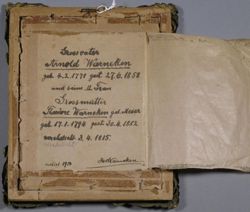 Grossvater
Arnold Warneken
geb. 4.3.1771 gest. 27.6.1850
und seine II. Frau
Grossmutter
Warneken geb. Meier
geb. 17.1.1794 gest. 30.4.1852
verheiratet 3.4.1815.